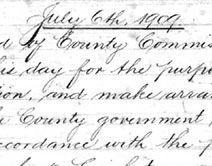 July 6th, 1909.
d by County Commis
his day for the purp
ion, and make arran
he County government
ccordance with the p